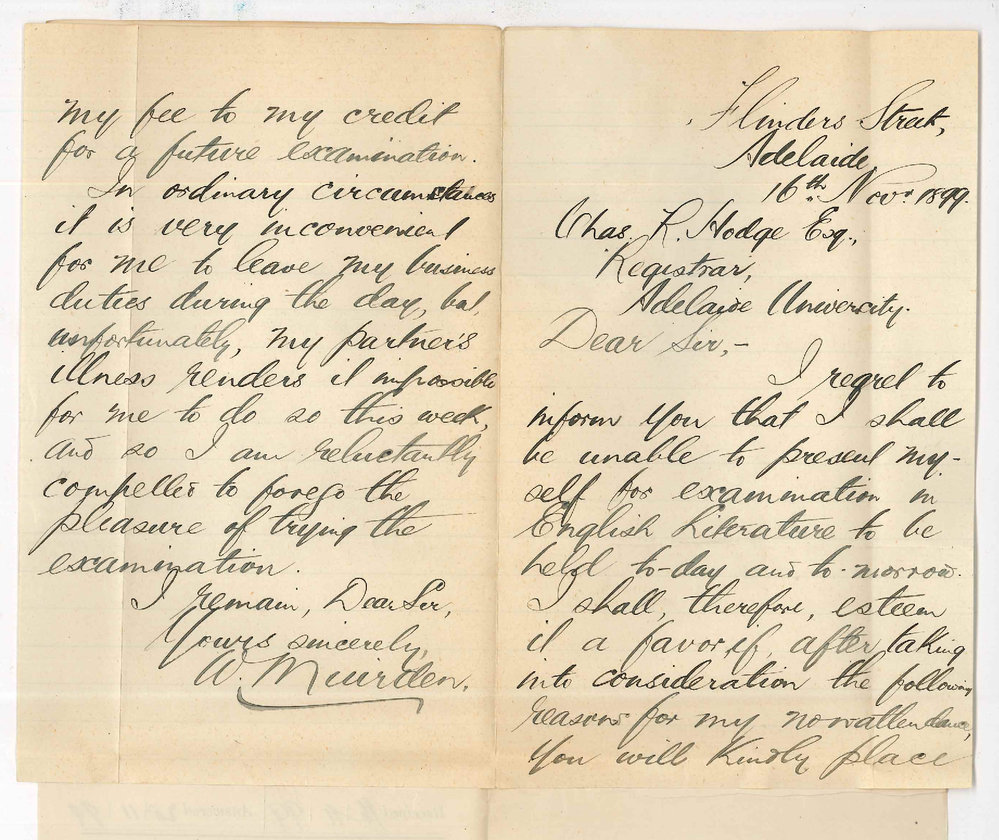 Flinders Street,
Adelaide,
16th Novr. 1899.
Chas. R. Hodge Esq.,
Registrar,
Adelaide University.
Dear Sir,-
I regret to
inform you that I shall
be unable to present my-
self for examination in
English Literature to be
held to-day and to-morrow.
I shall, therefore, esteem
it a favor, if, after taking
into consideration the following
reasons for my nonattendance,
you will kindly place
my fee to my credit
for a future examination.
In ordinary circumstances
it is very inconvenient
for me to leave my business
duties during the day, but,
unfortunately, my partner's
illness renders it impossible
for me to do so this week,
and so I am reluctantly
compelled to forego the
pleasure of trying the
examination.
I remain, Dear Sir,
Yours sincerely,
W. Muirden.